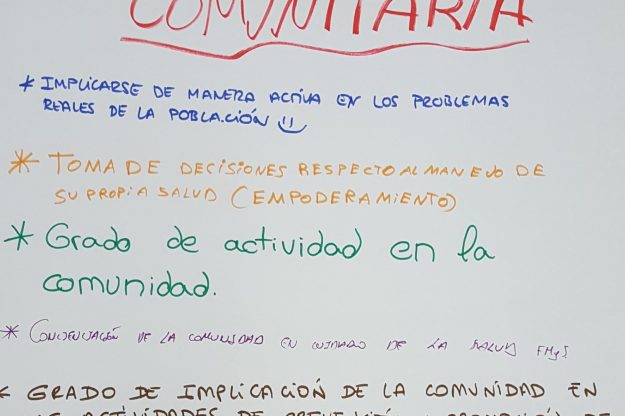 COMUNITARIA
* IMPLICARSE DE MANERA ACTIVA EN LOS PROBLEMAS
REALES DE LA POBLACIÓN
* TOMA DE DECISIONES RESPECTO AL MANEJO DE
SU PROPIA SALUD (EMPODERAMIENTO)
* Grado de actividad en la
comunidad.
* CONCIENCIACIÓN DE LA COMUNIDAD EN CUIDADO DE LA SALUD
* GRADO DE IMPLICACIÓN DE LA COMUNIDAD EN
ACTIVIDADES DE